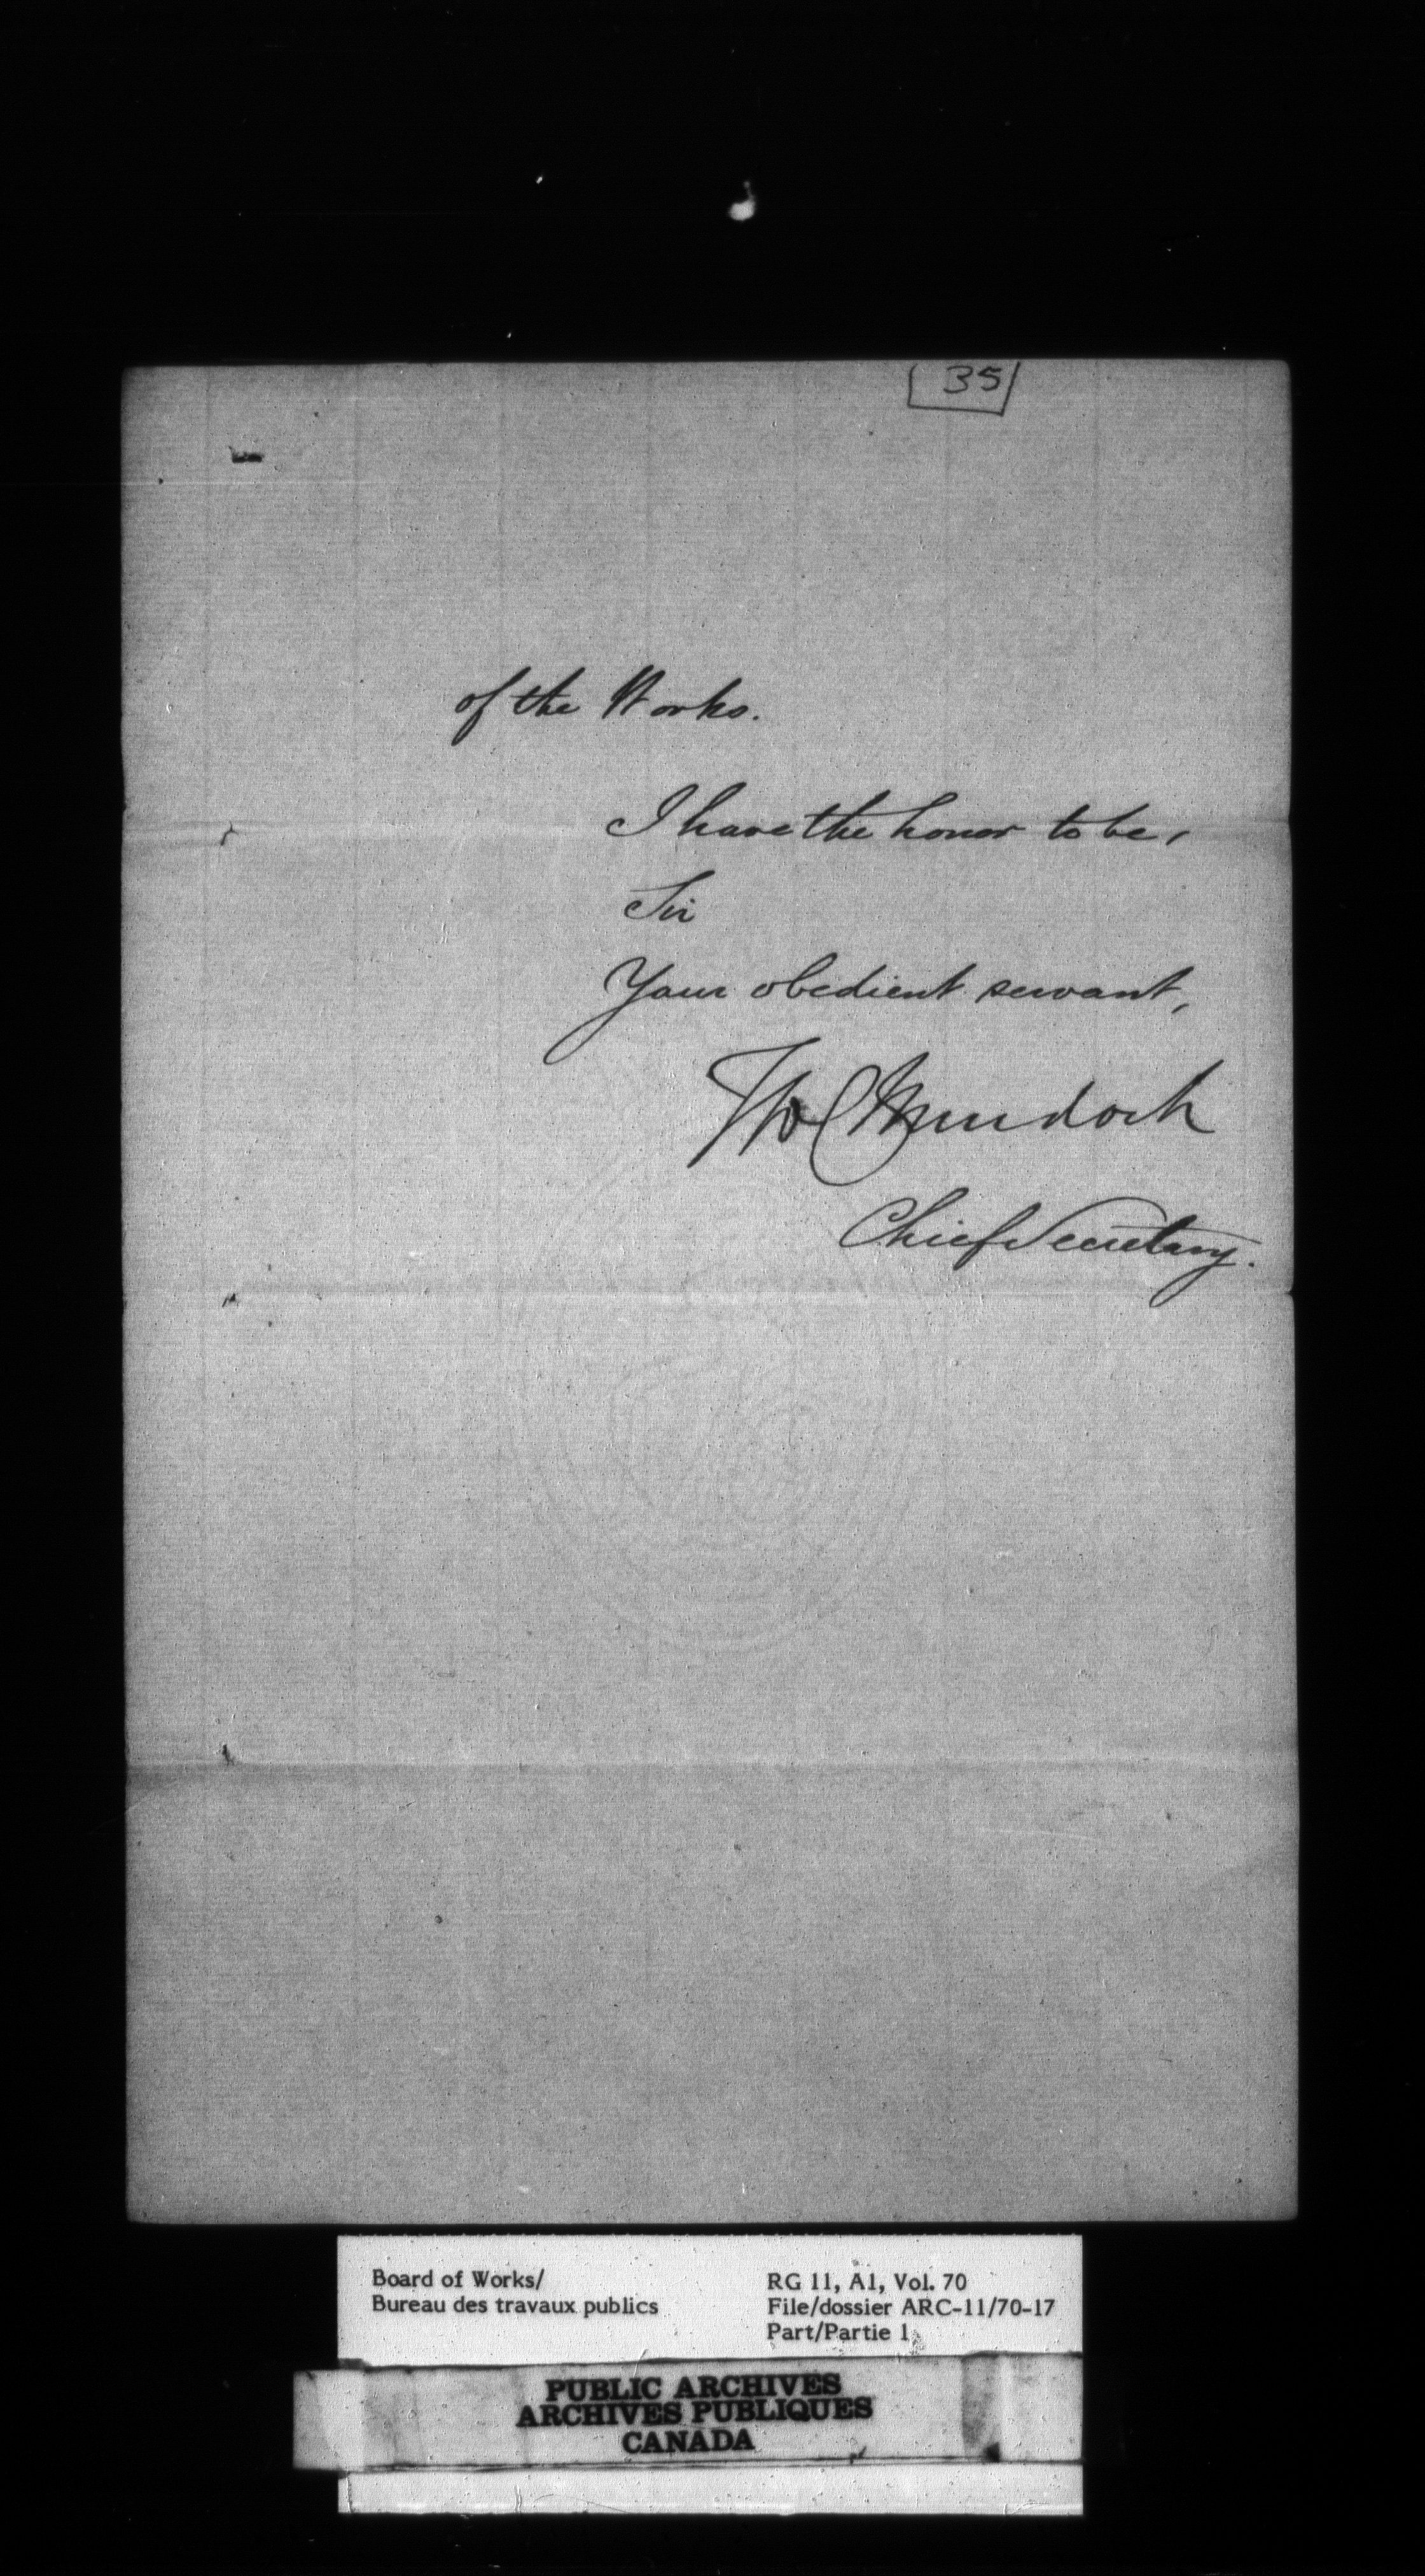 35
of the Works.
I have the honor to be,
Sir
Your obedient servant,
Tho C Murdoch
Chief Secretary.
Board of Works/
Bureau des travaux publics
RG 11, A1, Vol. 70
File/dossier ARC-11/70-17
Part/Partie 1
PUBLIC ARCHIVES
ARCHIVES PUBLIQUES
CANADA